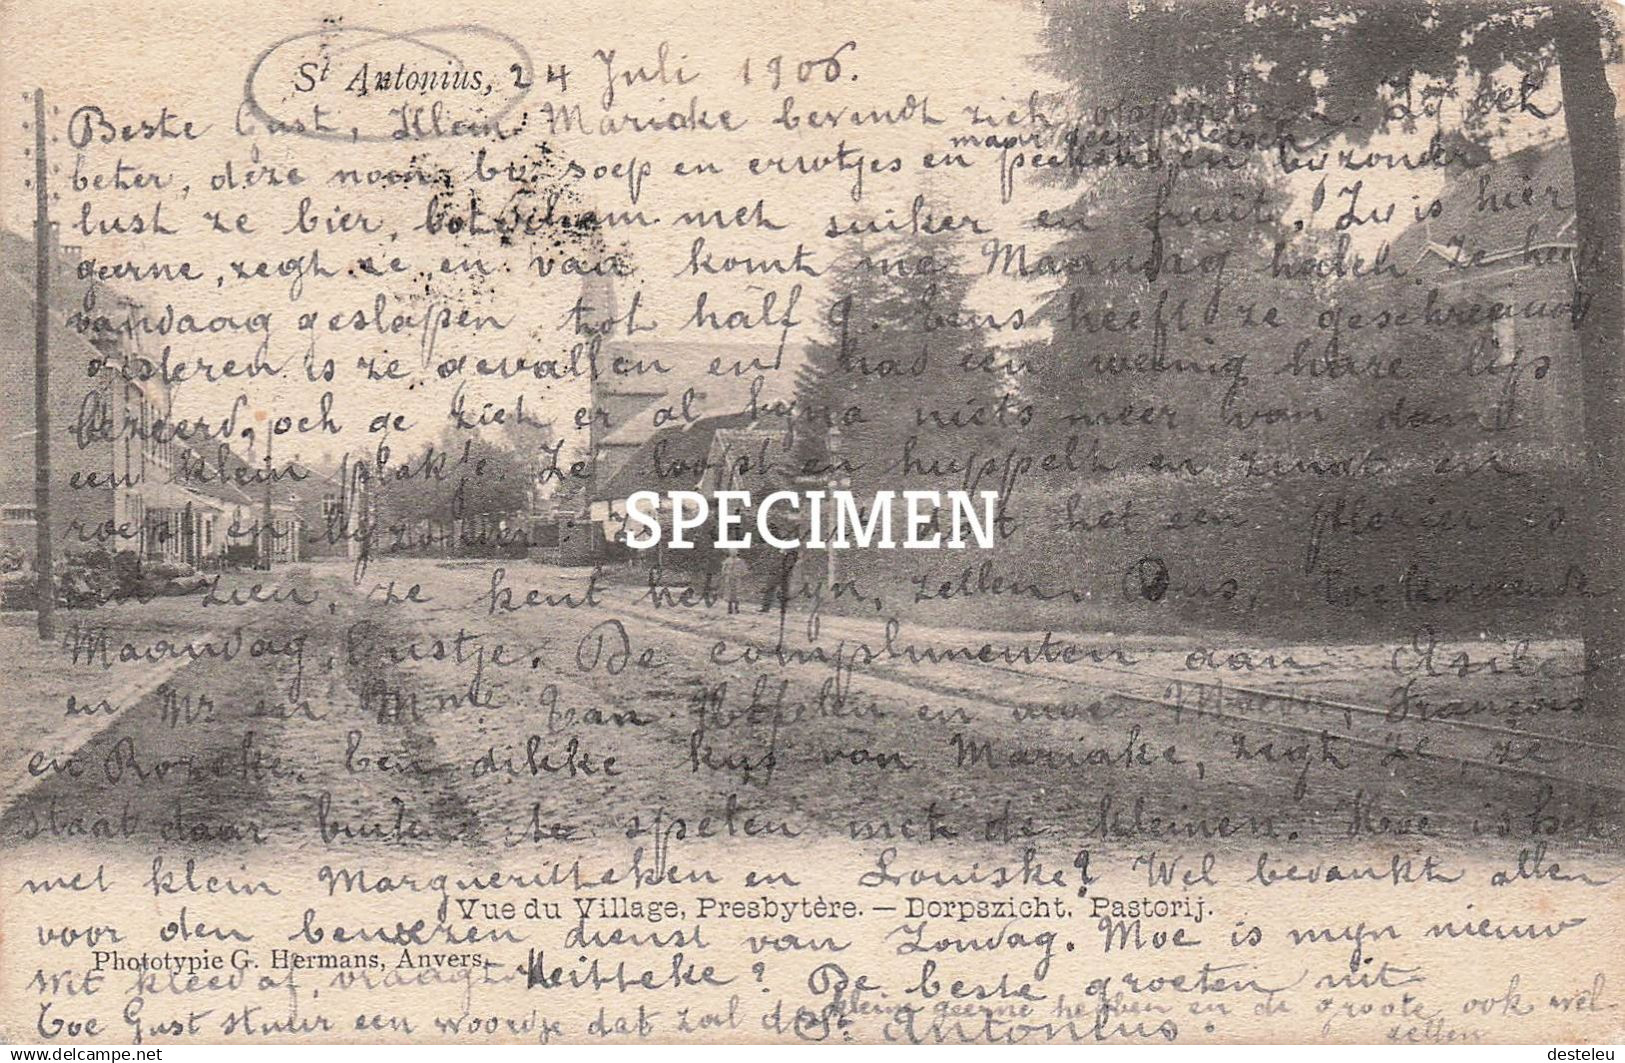 St Antonius, 24 Juli 1906.
Beste Gust, Klein Marieke bevindt zich opperbest. Zij eet
maar geen vleesch
beter, deze noen by soep en errwtjes en peekens en byzonder
lust ze bier, boterham met suiker en fruit! Zy is hier
geerne, zegt ze en van komt me Maandag halen. Ze heeft
vandaag geslapen tot half 9. Eens heeft ze geschreeuwd
gisteren is ze gevallen en had een weinig hare lip
bezeerd, och ge ziet er al byna niets meer van dan
een klein plakje. Ze loopt en huppelt en zingt en
roept en byzonder: het een plezier is
zien, ze kent het fyn, zellen. Dus, toekomende
Maandag, Gustje. De complimenten aan
en Mr en Mme Van en uwe Moeder, François
en Rozeke. Een dikke kus van Marieke, zegt ze, ze
staat daar buiten te spelen met de kleinen. Hoe is het
met klein Margueritteken en Louiske? Wel bedankt allen
Vue du Village, Presbytère. — Dorpszicht, Pastorij.
voor den bewezen dienst van Zondag. Moe is myn nieuw
Phototypie G. Hermans, Anvers.
wit kleed af, vraagt Meitteke? De beste groeten uit
St. Antonius.
Toe Gust stuur een woordje dat zal de klein geerne hebben en de groote ook wel
zellen
SPECIMEN
desteleu